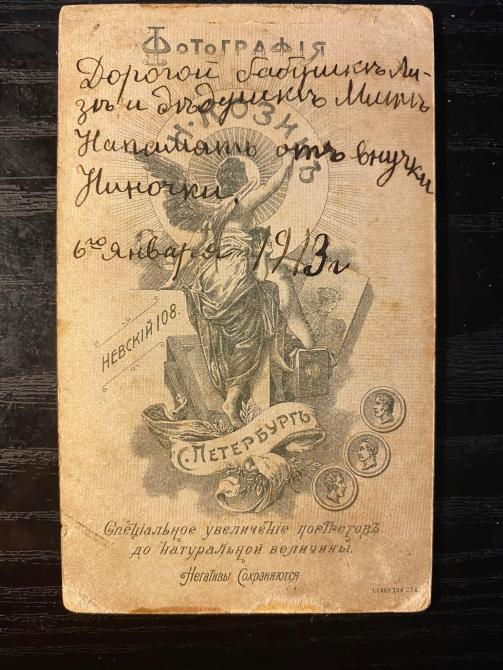 ФОТОГРАФІЯ
Дорогой бабушкѣ Ли-
зѣ и дѣдушкѣ Мишѣ
На память отъ внучки
Ниночки.
6го января 1913 г
НЕВСКІЙ 108.
С.ПЕТЕРБУРГЪ
Спеціальное увеличеніе портретовъ
до натуральной величины.
Негативы Сохраняются